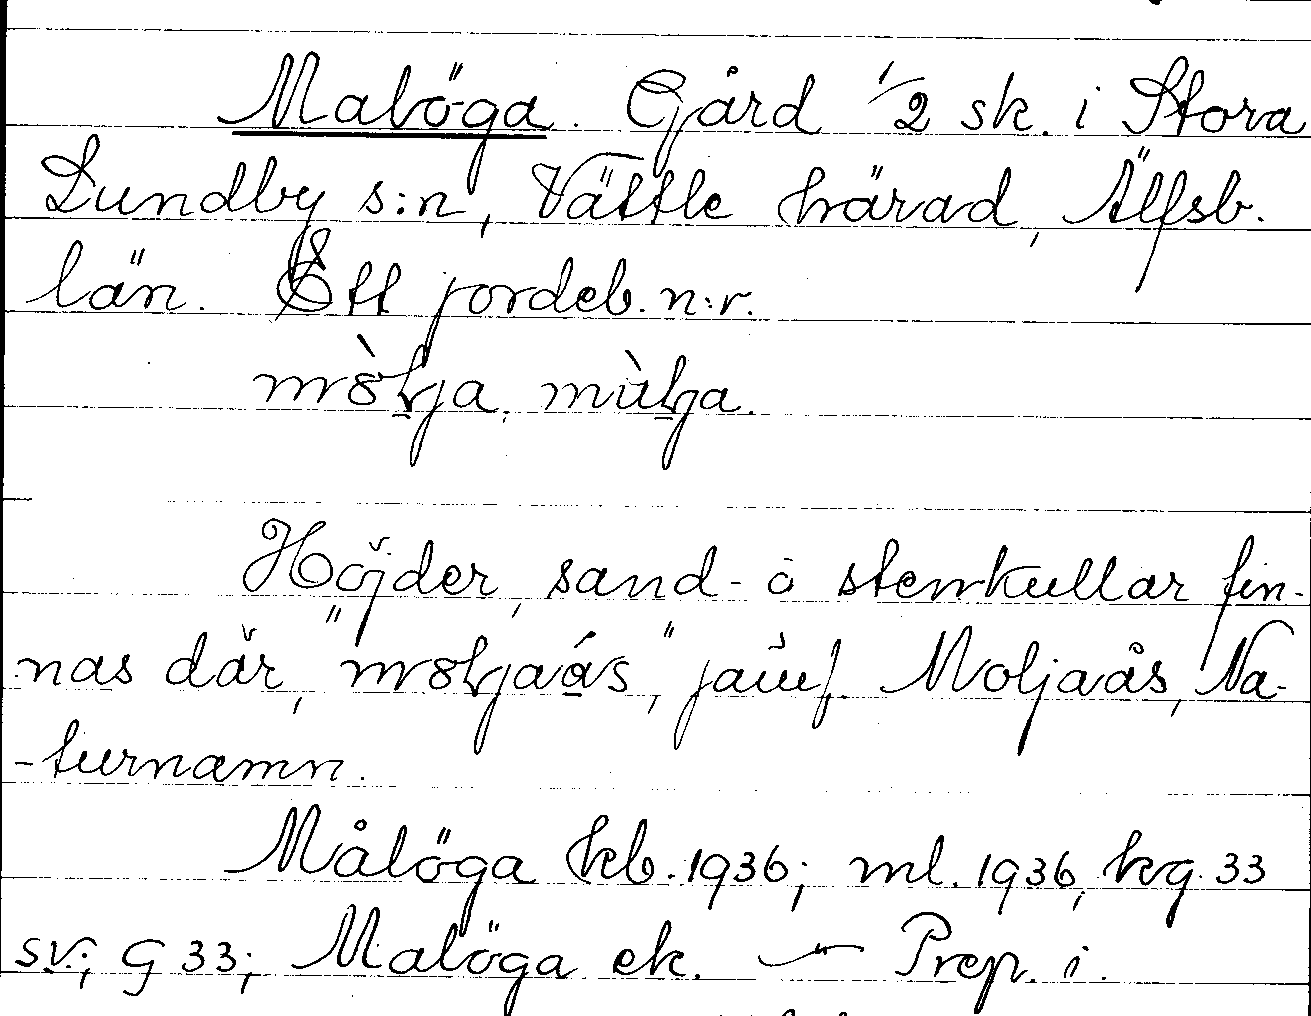 Malöga. Gård 1/2 sk. i Stora
Lundby s:n, Vättle härad, Älfsb.
län. Ett jordeb. n:r.
mòlja, mùlja.
Höjder, sand- o stenkullar fin-
nas där, "moljaás", jämf. Moljaås, Na-
-turnamn.
Målöga kb. 1936; ml. 1936, krg. 33
sv.; G 33; Malöga ek. — Prep. i.